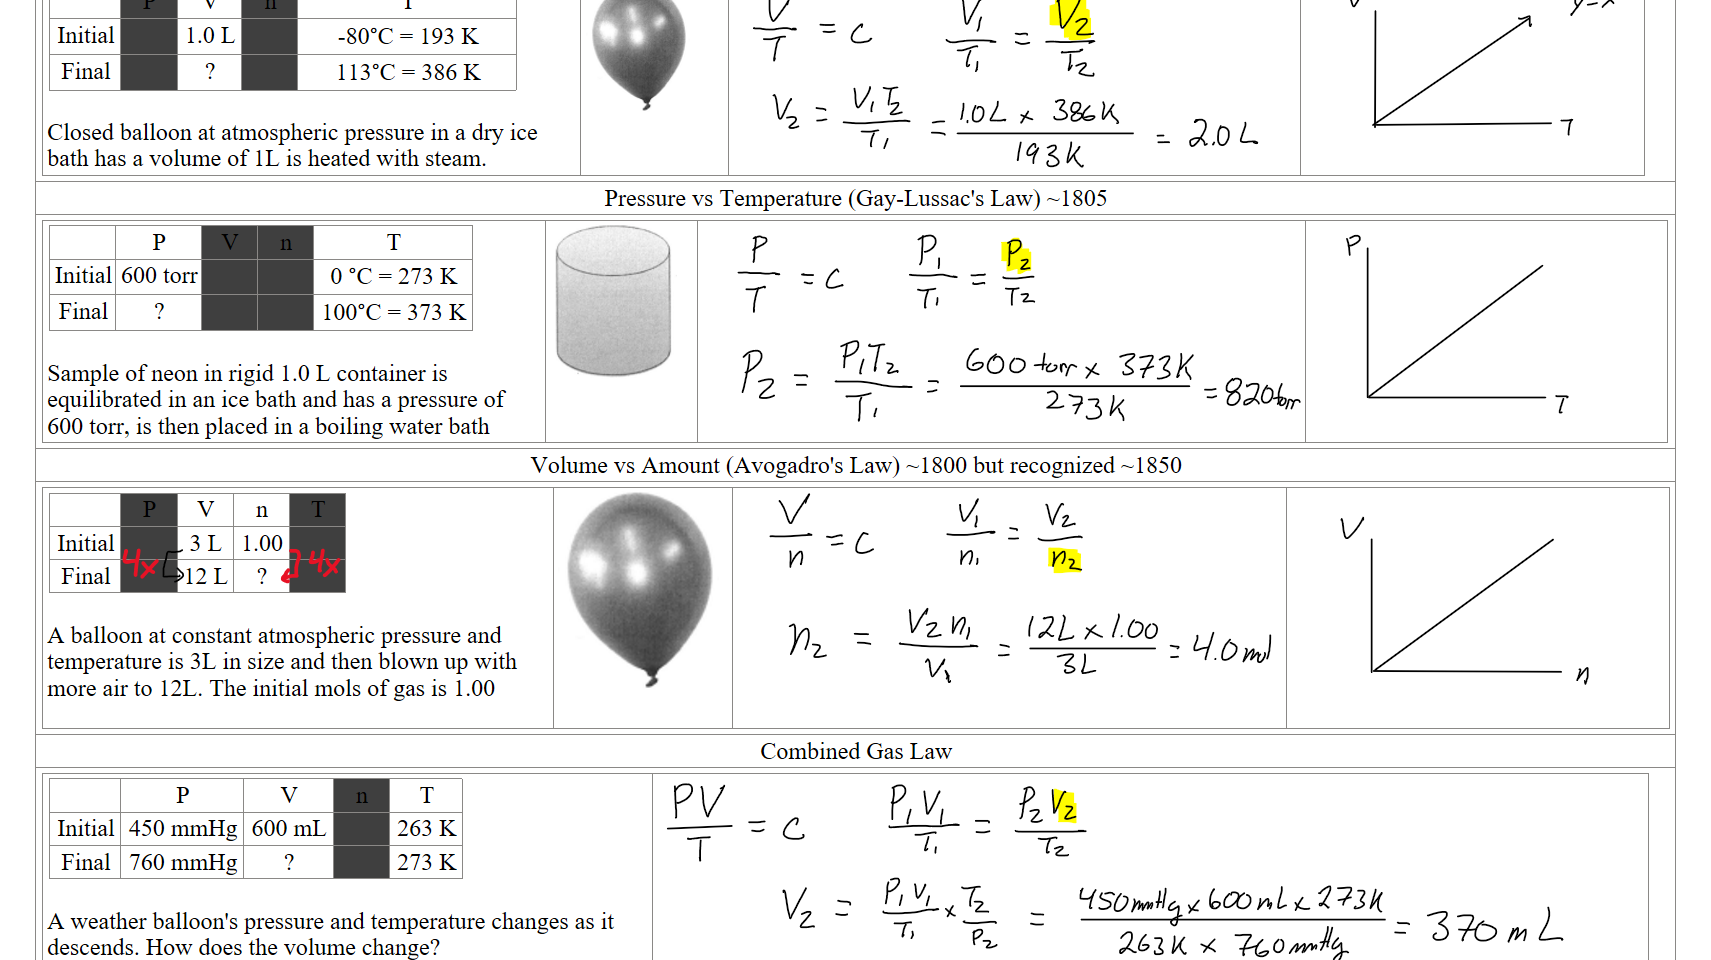 P V n T
Initial 1.0 L -80°C = 193 K
Final ? 113°C = 386 K
Closed balloon at atmospheric pressure in a dry ice
bath has a volume of 1L is heated with steam.
V/T = c V₁/T₁ = V₂/T₂
V₂ = V₁T₂/T₁ = 1.0L x 386K/193K = 2.0L
V y=x
T
Pressure vs Temperature (Gay-Lussac's Law) ~1805
P V n T
Initial 600 torr 0 °C = 273 K
Final ? 100°C = 373 K
Sample of neon in rigid 1.0 L container is
equilibrated in an ice bath and has a pressure of
600 torr, is then placed in a boiling water bath
P/T = c P₁/T₁ = P₂/T₂
P₂ = P₁T₂/T₁ = 600 torr x 373K/273K = 820torr
P
T
Volume vs Amount (Avogadro's Law) ~1800 but recognized ~1850
P V n T
Initial 3 L 1.00
4x 4x
Final 12 L ?
A balloon at constant atmospheric pressure and
temperature is 3L in size and then blown up with
more air to 12L. The initial mols of gas is 1.00
V/n = c V₁/n₁ = V₂/n₂
n₂ = V₂n₁/V₁ = 12L x 1.00/3L = 4.0mol
V
n
Combined Gas Law
P V n T
Initial 450 mmHg 600 mL 263 K
Final 760 mmHg ? 273 K
A weather balloon's pressure and temperature changes as it
descends. How does the volume change?
PV/T = c P₁V₁/T₁ = P₂V₂/T₂
V₂ = P₁V₁/T₁ x T₂/P₂ = 450mmHg x 600mL x 273K/263K x 760mmHg = 370mL